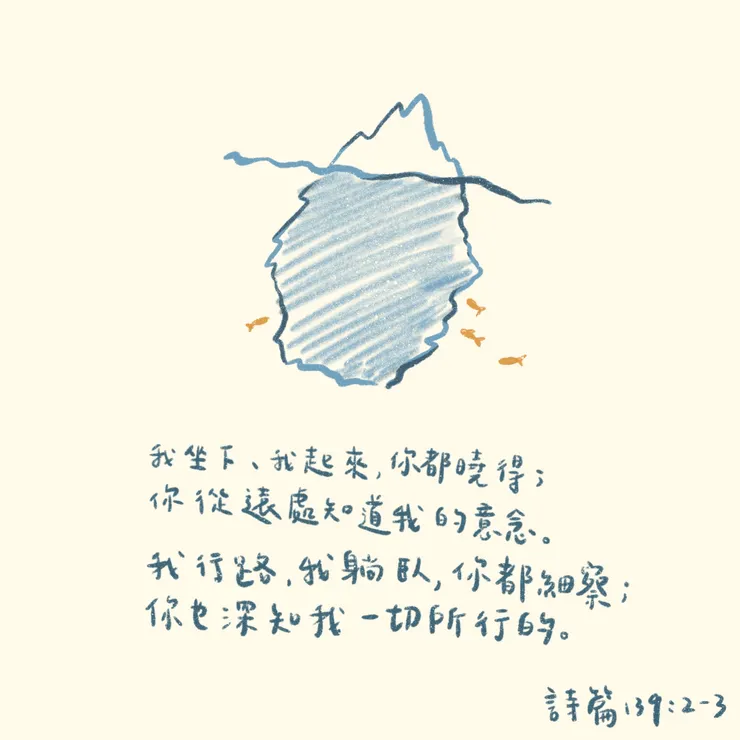 我坐下、我起來，你都曉得；
你從遠處知道我的意念。
我行路，我躺臥，你都細察；
你也深知我一切所行的。
詩篇139:2-3